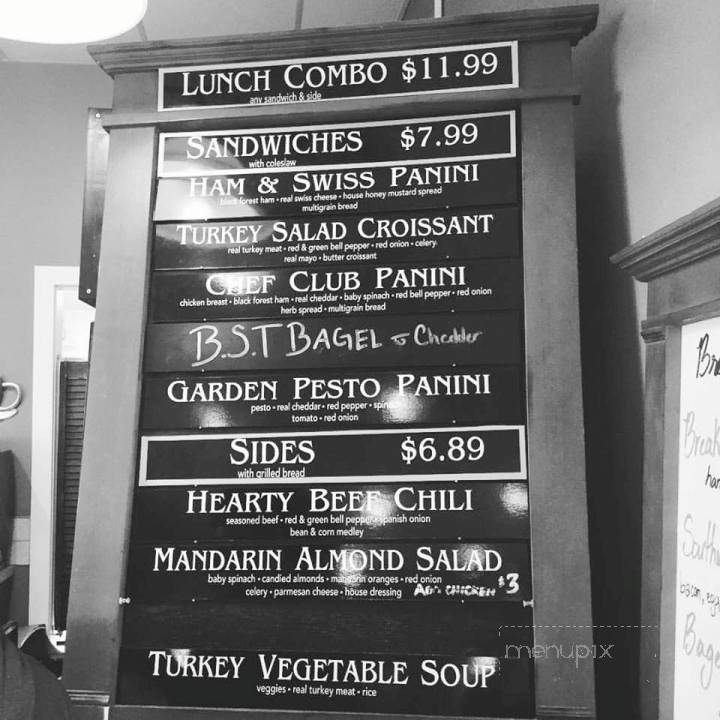 LUNCH COMBO $11.99
any sandwich & side
SANDWICHES $7.99
with coleslaw
HAM & SWISS PANINI
black forest ham • real swiss cheese • house honey mustard spread
multigrain bread
TURKEY SALAD CROISSANT
real turkey meat • red & green bell pepper • red onion • celery
real mayo • butter croissant
CHEF CLUB PANINI
chicken breast • black forest ham • real cheddar • baby spinach • red bell pepper • red onion
herb spread • multigrain bread
B.S.T BAGEL Chedder
GARDEN PESTO PANINI
pesto • real cheddar • red pepper • spinach
tomato • red onion
SIDES $6.89
with grilled bread
HEARTY BEEF CHILI
seasoned beef • red & green bell pepper • spanish onion
bean & corn medley
MANDARIN ALMOND SALAD
baby spinach • candied almonds • mandarin oranges • red onion
celery • parmesan cheese • house dressing ADD CHICKEN $3
TURKEY VEGETABLE SOUP
veggies • real turkey meat • rice
menupix